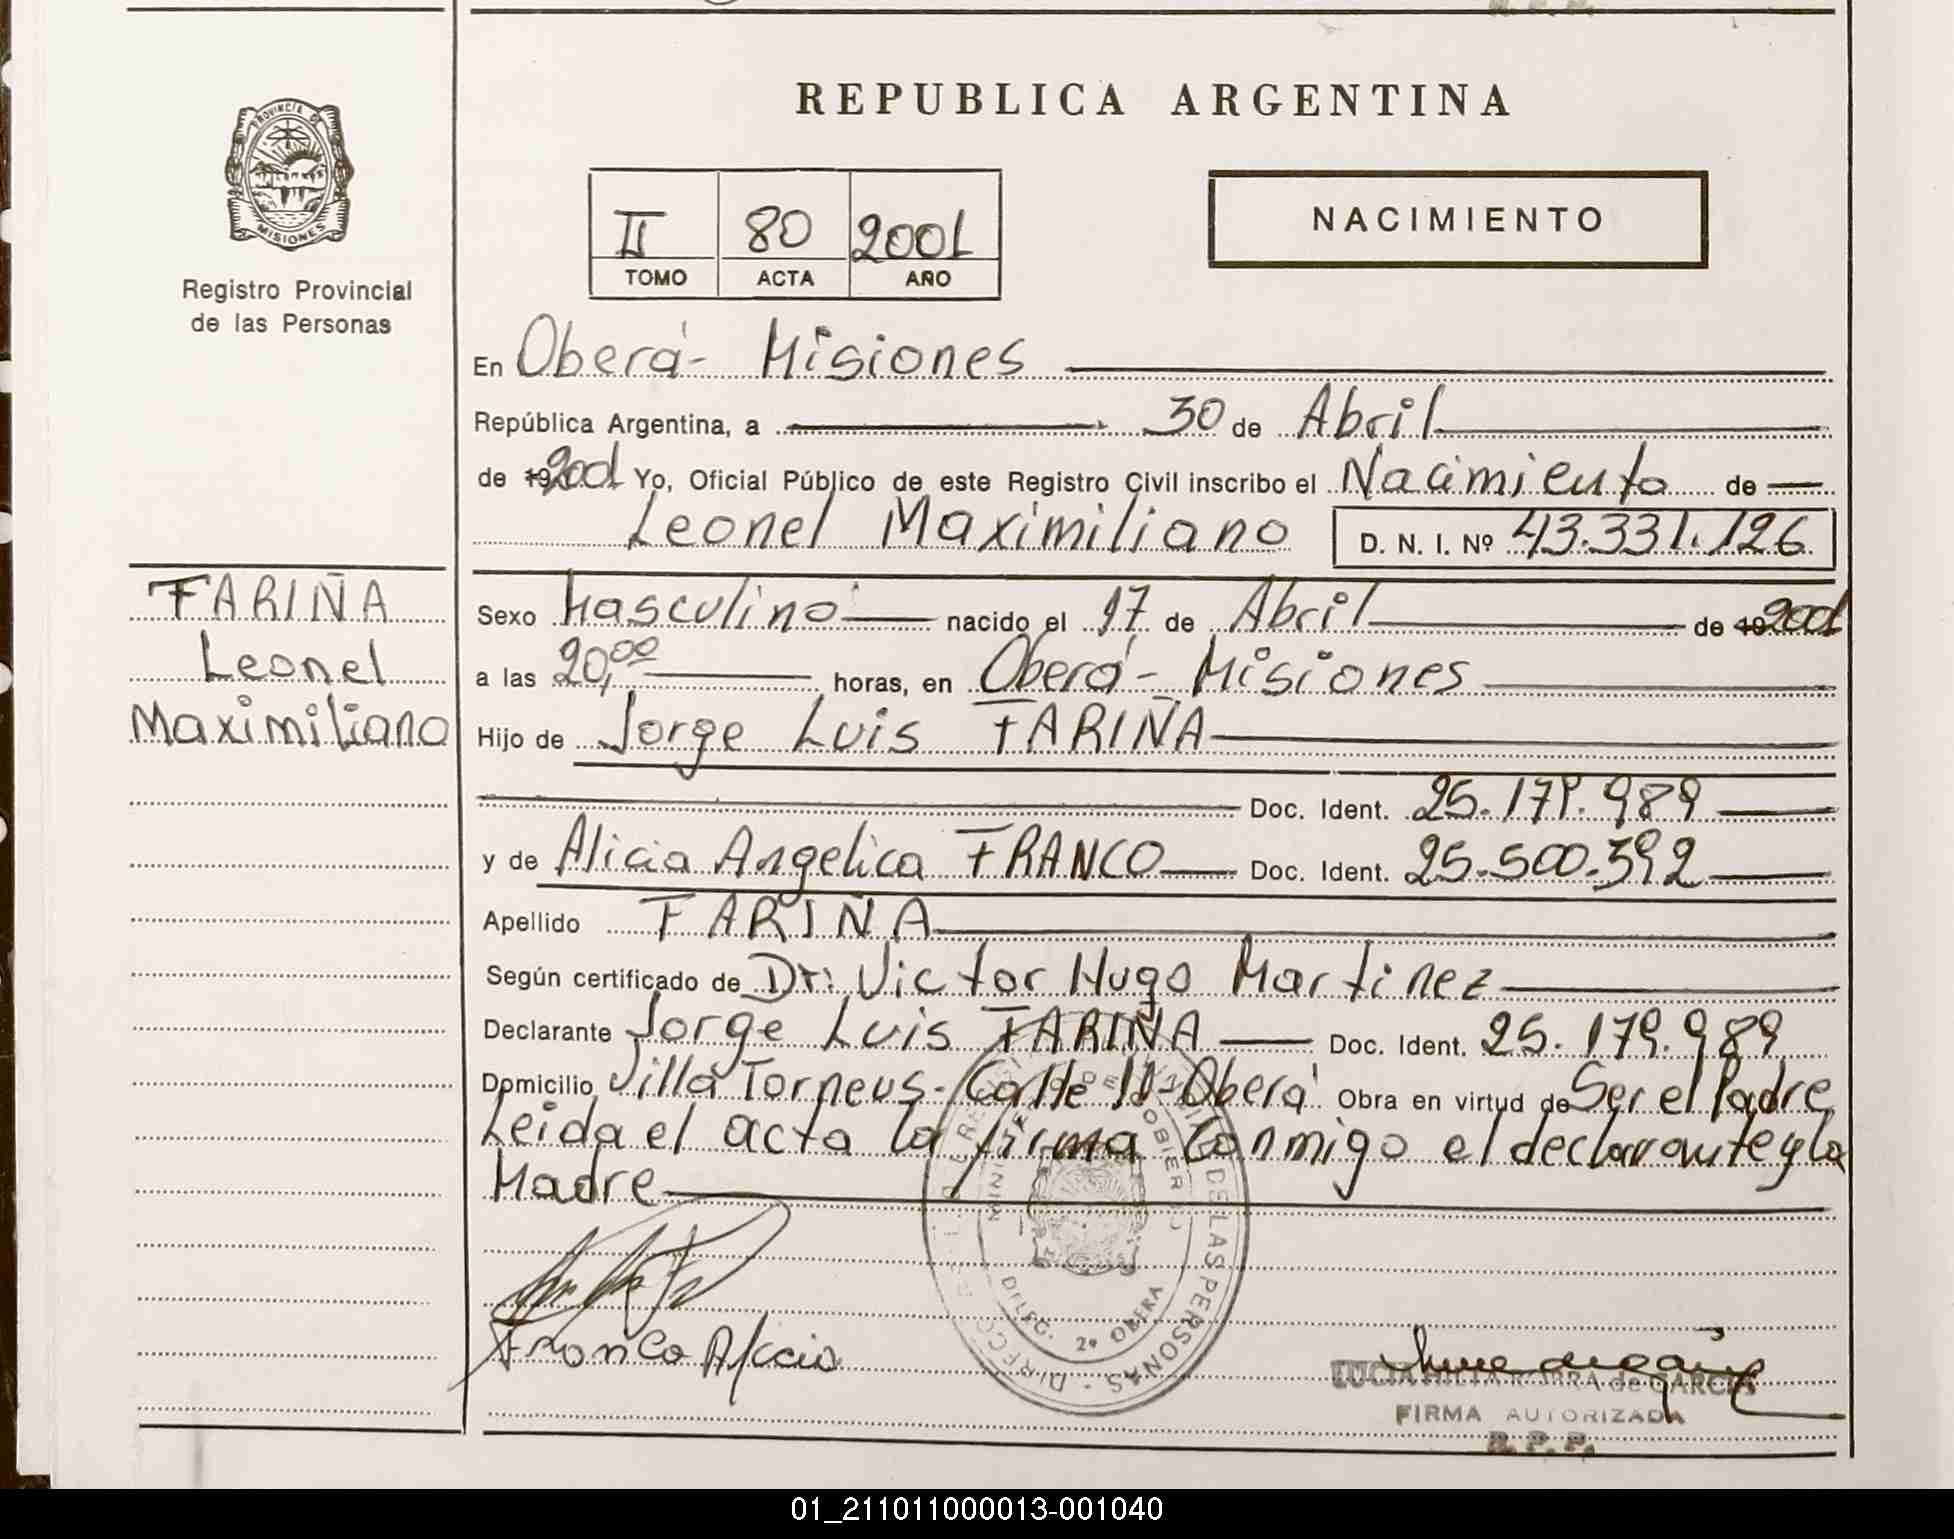 REPUBLICA ARGENTINA
PROVINCIA DE
MISIONES
Registro Provincial
de las Personas
II 80 2001
TOMO ACTA AÑO
NACIMIENTO
En Oberá- Misiones
República Argentina, a 30 de Abril
de 2001 Yo, Oficial Público de este Registro Civil inscribo el Nacimiento de
Leonel Maximiliano D. N. I. Nº 43.331.126
FARIÑA
Leonel
Maximiliano
Sexo Masculino nacido el 17 de Abril de 2001
a las 20,00 horas, en Oberá- Misiones
Hijo de Jorge Luis FARIÑA
Doc. Ident. 25.179.989
y de Alicia Angelica FRANCO Doc. Ident. 25.500.392
Apellido FARIÑA
Según certificado de Dr: Victor Hugo Martinez
Declarante Jorge Luis FARIÑA Doc. Ident. 25.179.989
Domicilio Villa Torneus- Calle Oberá Obra en virtud de Ser el Padre
Leida el acta la firma Conmigo el declarante y la
Madre
DE LAS PERSONAS
DELEG. 2º OBERA
Franco Alicia
de GARCIA
FIRMA AUTORIZADA
R. P. P.
01_211011000013-001040